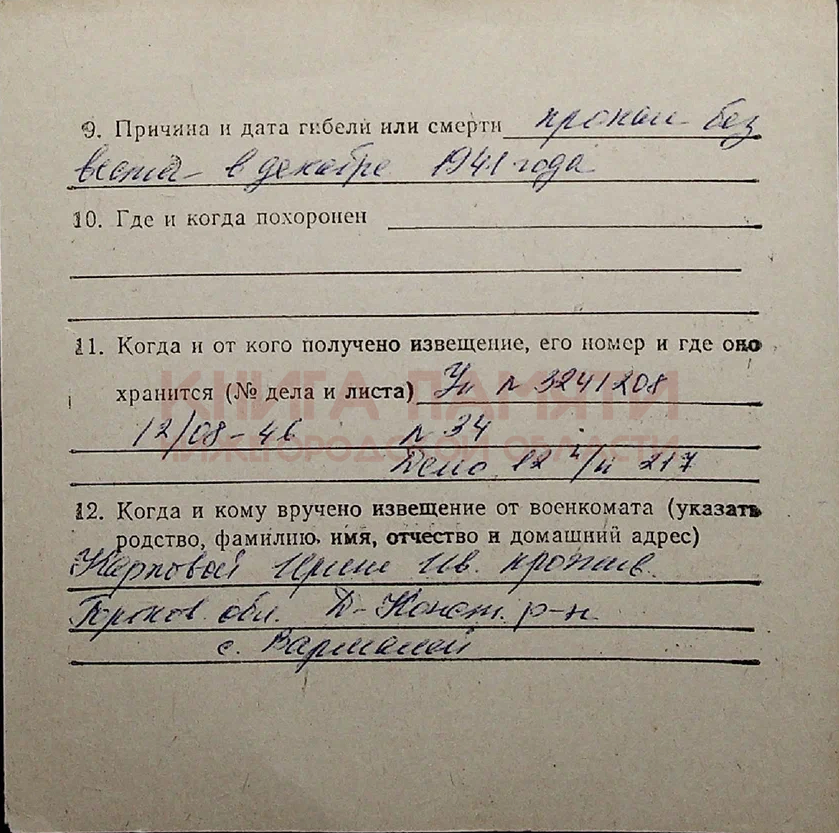 9. Причина и дата гибели или смерти пропал без
вести в декабре 1941 года
10. Где и когда похоронен
11. Когда и от кого получено извещение, его номер и где оно
хранится (№ дела и листа) Уп № 3241208
КНИГА ПАМЯТИ
12/08-46 № 34
НИЖЕГОРОДСКОЙ ОБЛАСТИ
Дело 12 п/п 217
12. Когда и кому вручено извещение от военкомата (указать
родство, фамилию, имя, отчество и домашний адрес)
Карповой Ирине Ив. прожив.
Горьков. обл. Д-Конст. р-н
с. Вармалей